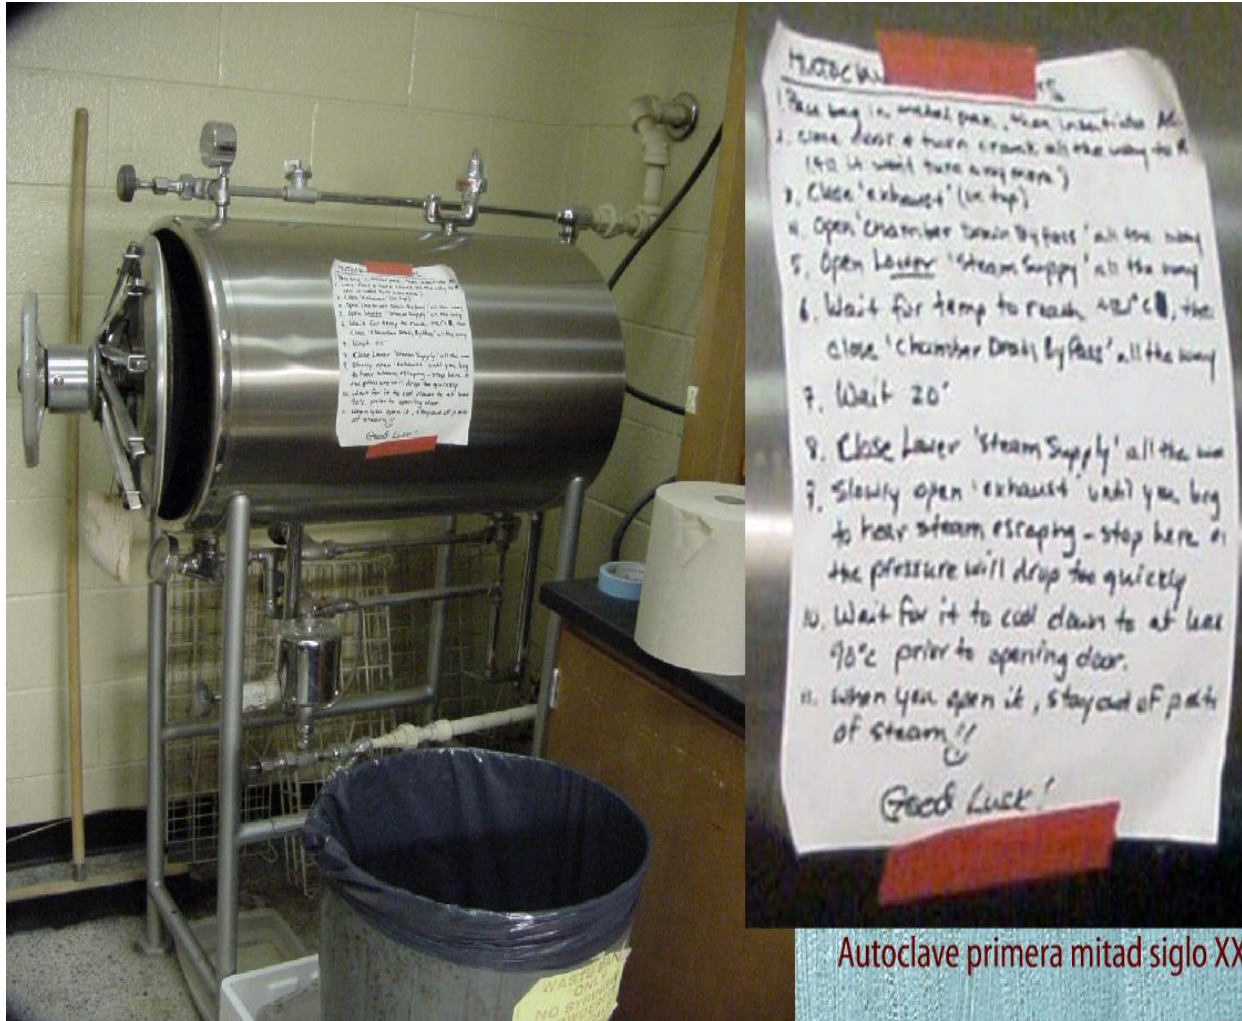 1. Place bag in metal pan, then insert into
2. Close door & turn crank all the way to R
('til it won't turn anymore)
3. Close 'exhaust' (on top)
4. Open 'Chamber Drain ByPass' all the way
5. Open Lower 'Steam Supply' all the way
6. Wait for temp to reach the
close 'Chamber Drain ByPass' all the way
7. Wait 20'
8. Close Lower 'Steam Supply' all the
9. Slowly open 'exhaust' until you beg
to hear steam escaping - stop here
the pressure will drop too quickly
10. Wait for it to cool down to at leas
90°C prior to opening door.
11. When you open it, stay out of path
of steam!!
Good Luck!
Autoclave primera mitad siglo XX
ONLY
NO